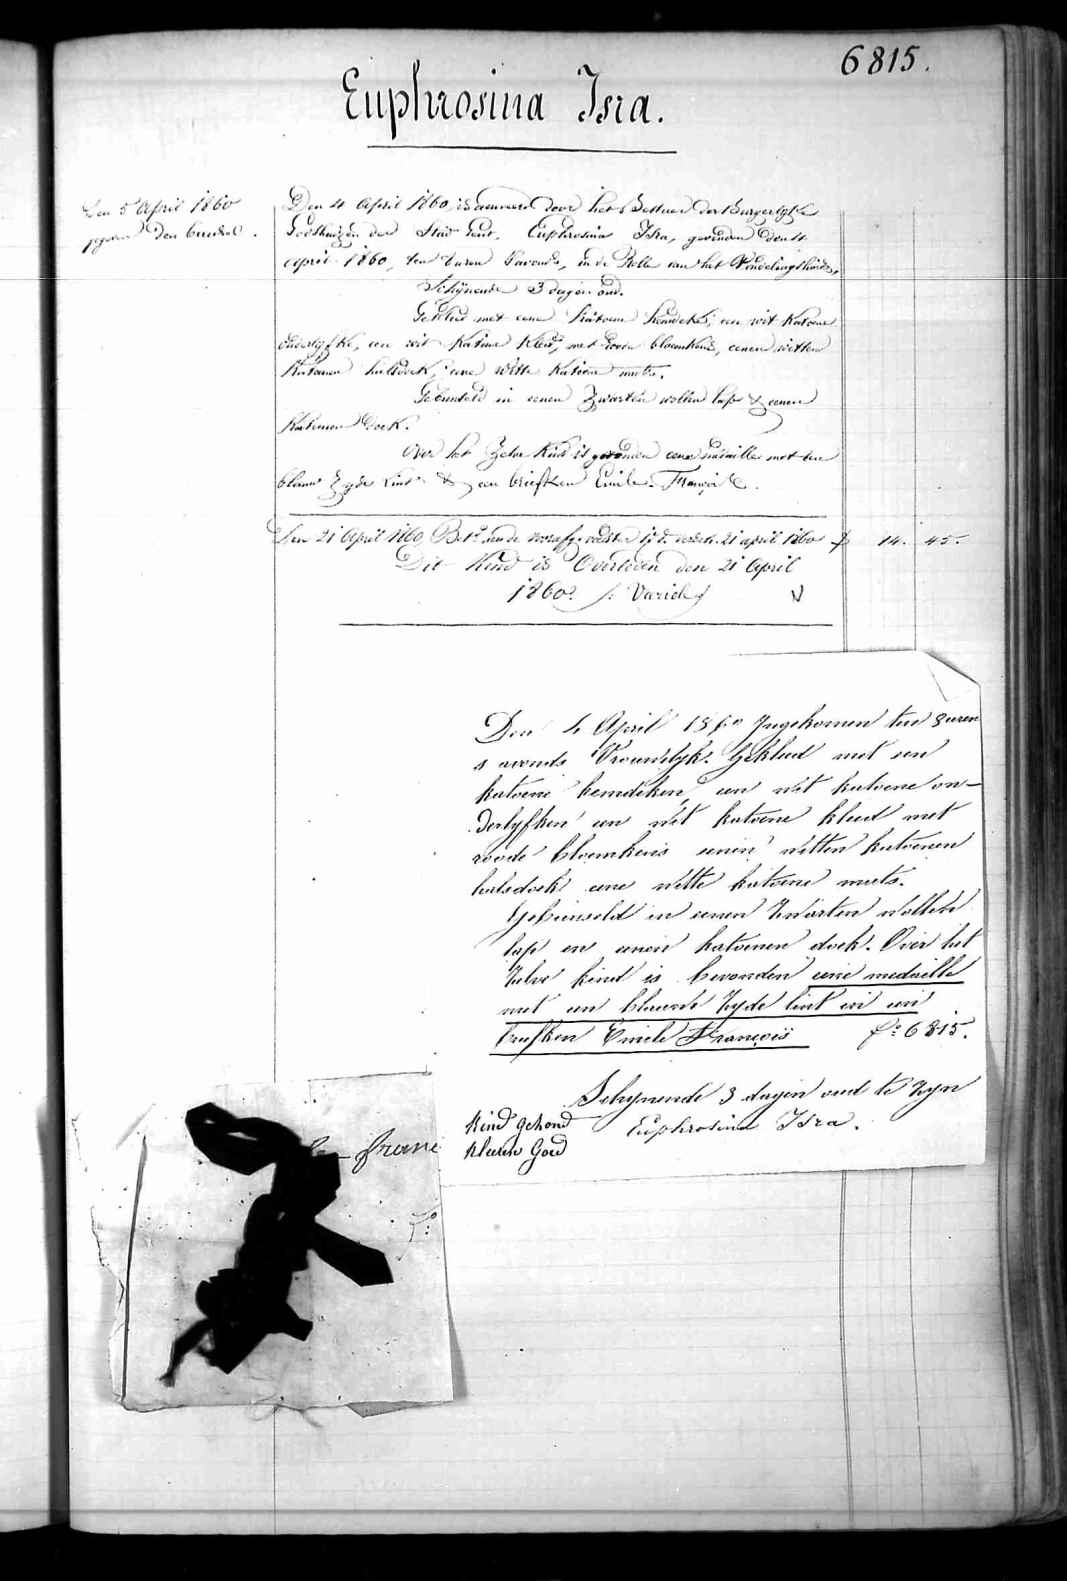 6815.
Euphrosina Isra.
Den 5 April 1860
gegeven den bundel.
Den 4 April 1860, is aenveerd door het Bestuer der Burgerlyke
Godshuizen der Stad Gent, Euphrosina Isra, gevonden den 4
april 1860, ten 8 uren s'avonds, in de Rolle van het Vondelingshuis,
Schijnende 3 dagen oud.
Gekleed met eene katoene hemdeke, een wit katoene
onderlyfke, een wit katoene kleed, met roode bloemkens, eenen witten
katoenen halsdoek, eene witte katoene muts.
Gebunseld in eenen Zwarten wollen lap & eenen
katoenen doek.
Over het Zelve Kind is gevonden eene medaille met een
blauw Zyde Lint & een briefken Emile François.
Den 21 April 1860 Bet. aende 21 april 1860 14. 45.
Dit Kind is Overleden den 21 April
1860.
Den 4 April 1860 Ingekomen ten 8 uren
s avonds Vrouwelyk. Gekleed met een
katoene hemdeken een wit katoene on-
derlyfken een wit katoene kleed met
roode bloemkens eenen witten katoenen
halsdoek eene witte katoene muts.
Gebunseld in eenen Zwarten wollen
lap en eenen katoenen doek. Over het
Zelve kind is bevonden eene medaille
met een blauwe Zyde lint en een
briefken Emile François f° 6815.
Schynende 3 dagen oud te Zyn
Euphrosina Isra.
Kind gezond
kleeren Goed
franc